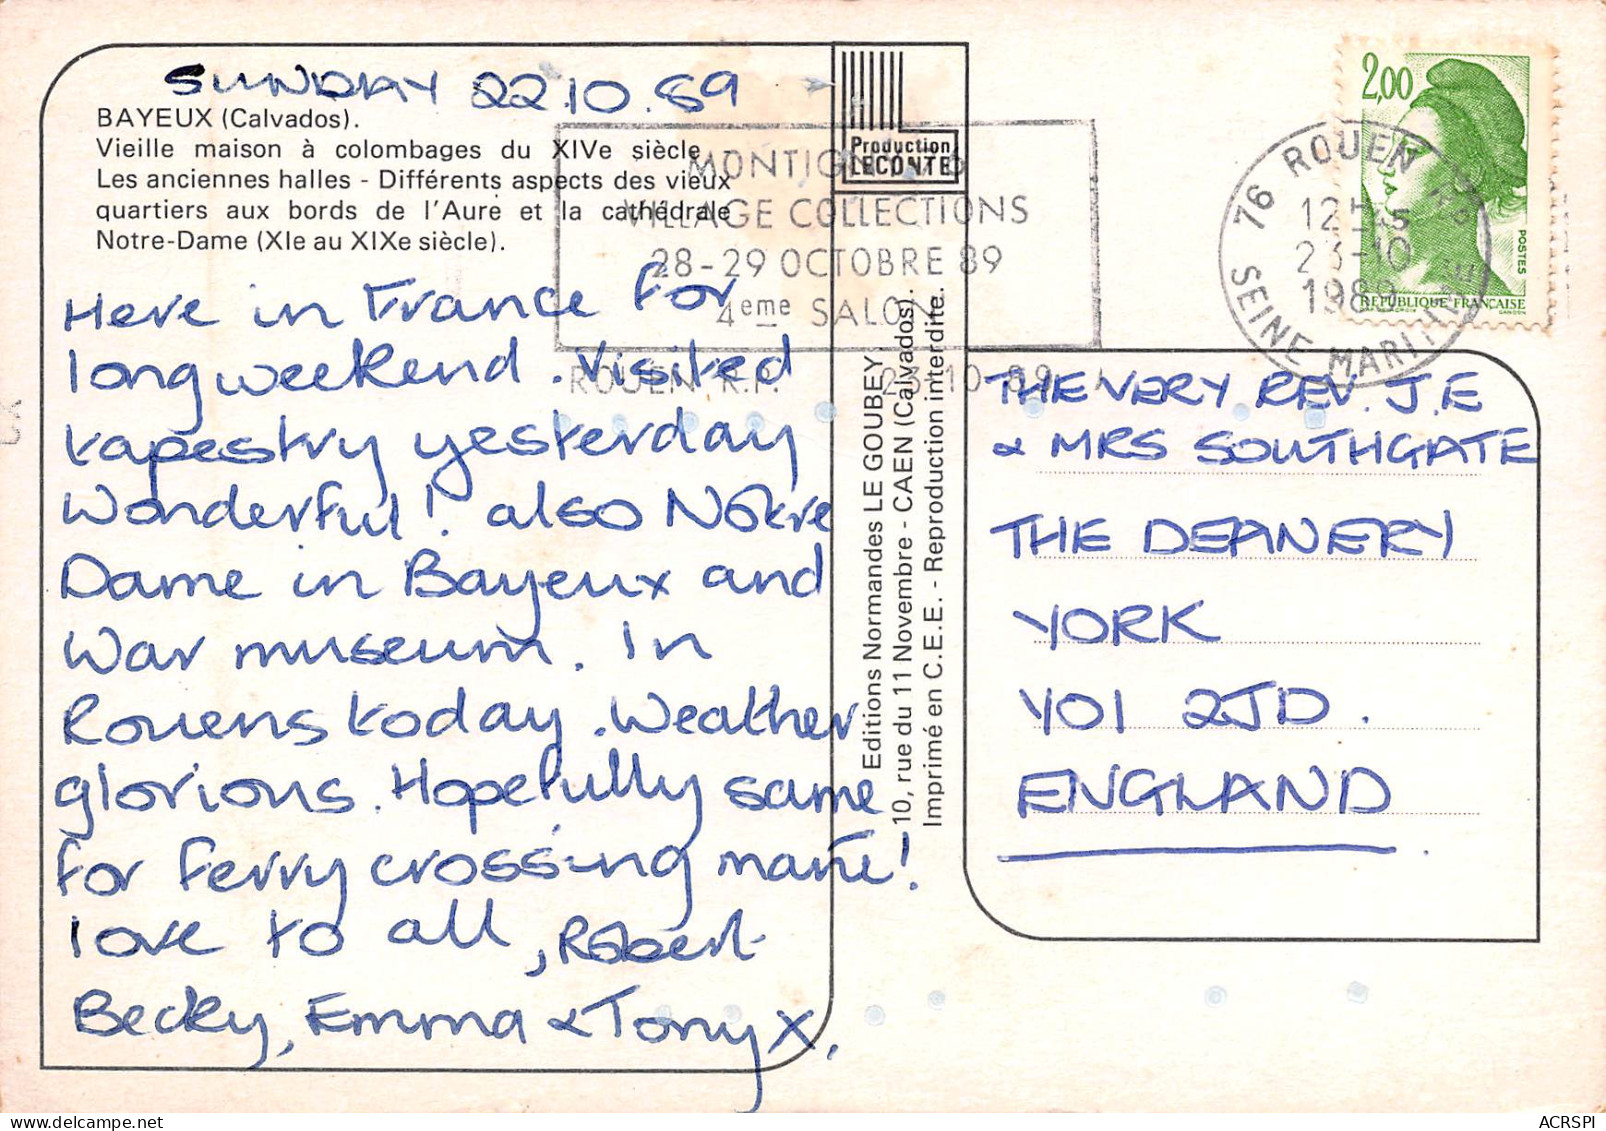 SUNDAY 22.10.89
BAYEUX (Calvados).
Vieille maison à colombages du XIVe siècle
Les anciennes halles - Différents aspects des vieux
quartiers aux bords de l'Aure et la cathédrale
Notre-Dame (XIe au XIXe siècle).
Here in France for
long weekend. Visited
tapestry yesterday
Wonderful! also Notre
Dame in Bayeux and
War museum. In
Rouens today. Weather
glorious. Hopefully same
for ferry crossing
love to all, Robert
Becky, Emma & Tony X.
Production
LECONTE
VILLAGE COLLECTIONS
28-29 OCTOBRE 89
4eme SALON
ROUEN R.P. 23-10-89
Editions Normandes LE GOUBEY
10, rue du 11 Novembre - CAEN (Calvados).
Imprimé en C.E.E. - Reproduction interdite.
2,00
POSTES
REPUBLIQUE FRANÇAISE
GANDON
76 ROUEN RP
23-10
1989
SEINE MARITIME
THE VERY REV. J.E
& MRS SOUTHGATE
THE DEANERY
YORK
YO1 2JD.
ENGLAND
ACRSPI